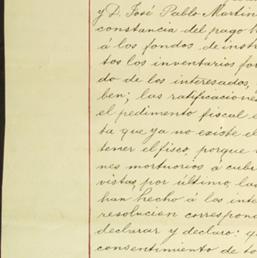 y D. José Pablo Martin
constancia del pago h
á los fondos de instr
tos los inventarios for
do de los interesados,
ben; las ratificacione
el pedimento fiscal e
ta que ya no existe el
temer el fisco, porque
nes mortuorios á cubr
vistas, por último, las
han hecho á los inte
resolucion correspon
declarar y declaró: q
consentimiento de to